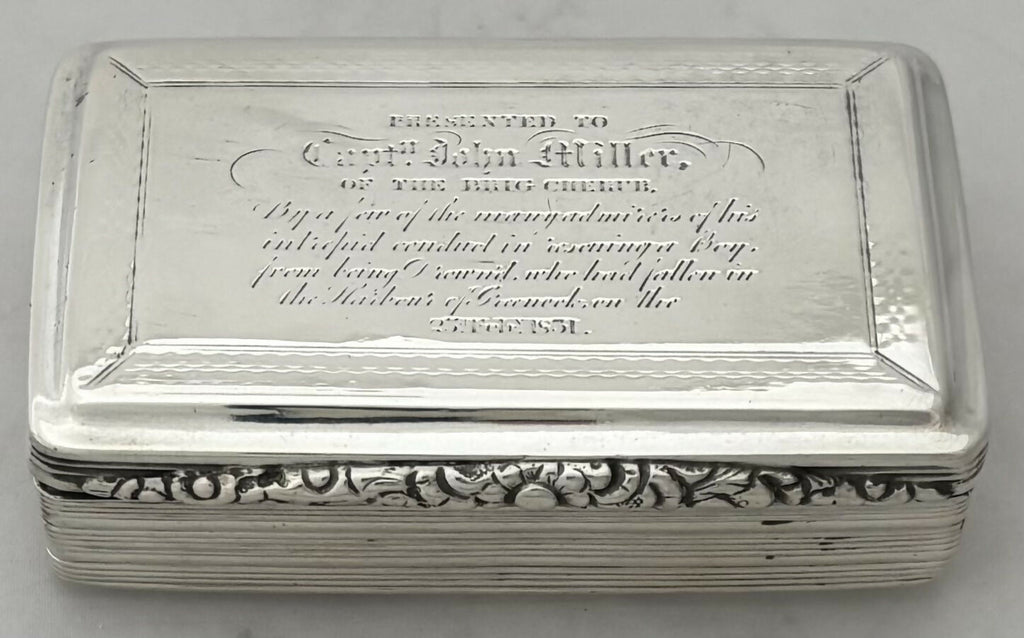 PRESENTED TO
Captn. John Miller,
OF THE BRIG CHERUB,
By a few of the many admirers of his
intrepid conduct in rescuing a Boy,
from being Drown'd, who had fallen in
the Harbour of Greenock, on the
Feby. 1831.